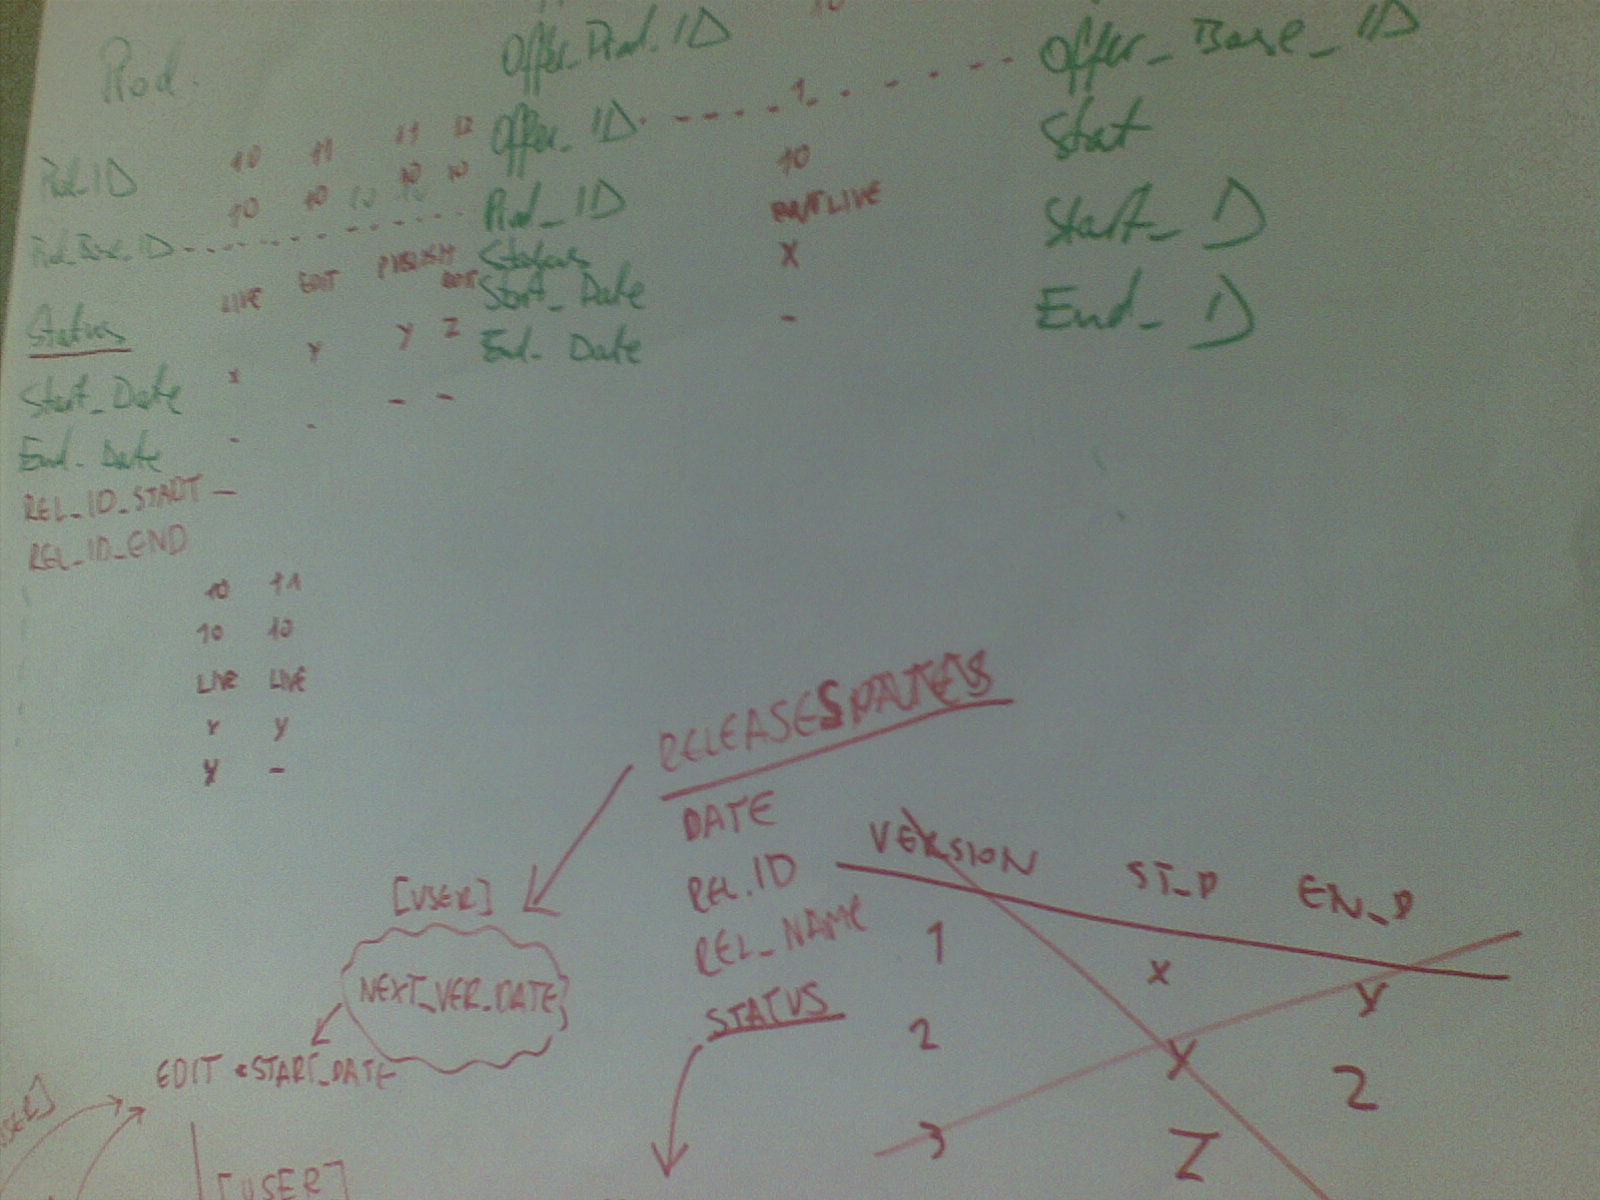 Prod.
Prod_ID 10 11 11 12
Prod_Base_ID 10 10 10 10
Status LIVE EDIT PUBLISH EDIT
Start_Date x Y Y Z
End_Date - - - -
REL_ID_START -
REL_ID_END
10 11
10 10
LIVE LIVE
Y Y
Y -
Offer_Prod_ID 10
Offer_ID 1
Prod_ID 10
Status LIVE
Start_Date X
End_Date -
Offer_Base_ID
Stat
Start_D
End_D
RELEASES
DATE
REL.ID
REL_NAME
STATUS
VERSION ST_D EN_D
1 X Y
2 Y Z
3 Z
[USER]
NEXT_VER.DATE
EDIT START_DATE
USER]
[USER]